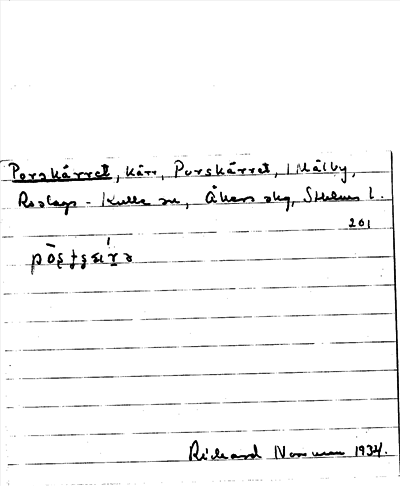 Porskärret, kärr, Purskärret, i Mälby,
Roslags-Kulla sn, Åkers skg, Sthlms l.
201
Rickard 1934.